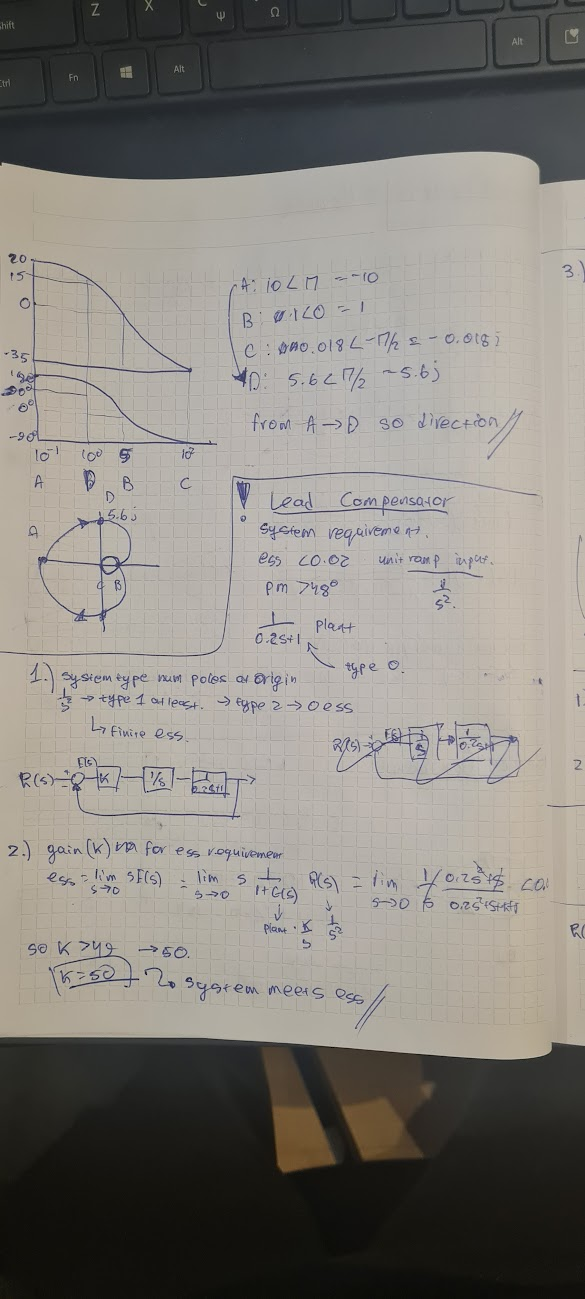 Z X C ψ Ω
Shift
Ctrl Fn Alt Alt
20
15
0
-35
180
90°
0°
-90°
10⁻¹ 10⁰ 5 10²
A D B C
A: 10∠π = -10
B: 1∠0 = 1
C: 0.018∠-π/2 = -0.018j
D: 5.6∠π/2 ~ 5.6j
from A → D so direction //
D
5.6j
A
C B
! Lead Compensator
system requirement.
ess < 0.02 unit ramp input.
1/s².
PM > 48°
1/(0.2s+1) plant
type 0.
1.) system type num poles at origin
1/s → type 1 at least. → type 2 → 0 ess
↳ finite ess.
R(s) E(s) 1/s 1/(0.2s+1)
R(s) E(s) K 1/s 1/(0.2s+1)
2.) gain (K) for ess requirement
ess = lim s→0 sE(s) = lim s→0 s 1/(1+G(s)) R(s) = lim s→0
plant · K/s 1/s²
so K > 49 → 50.
K = 50 system meets ess //
3.)
1
2
R(